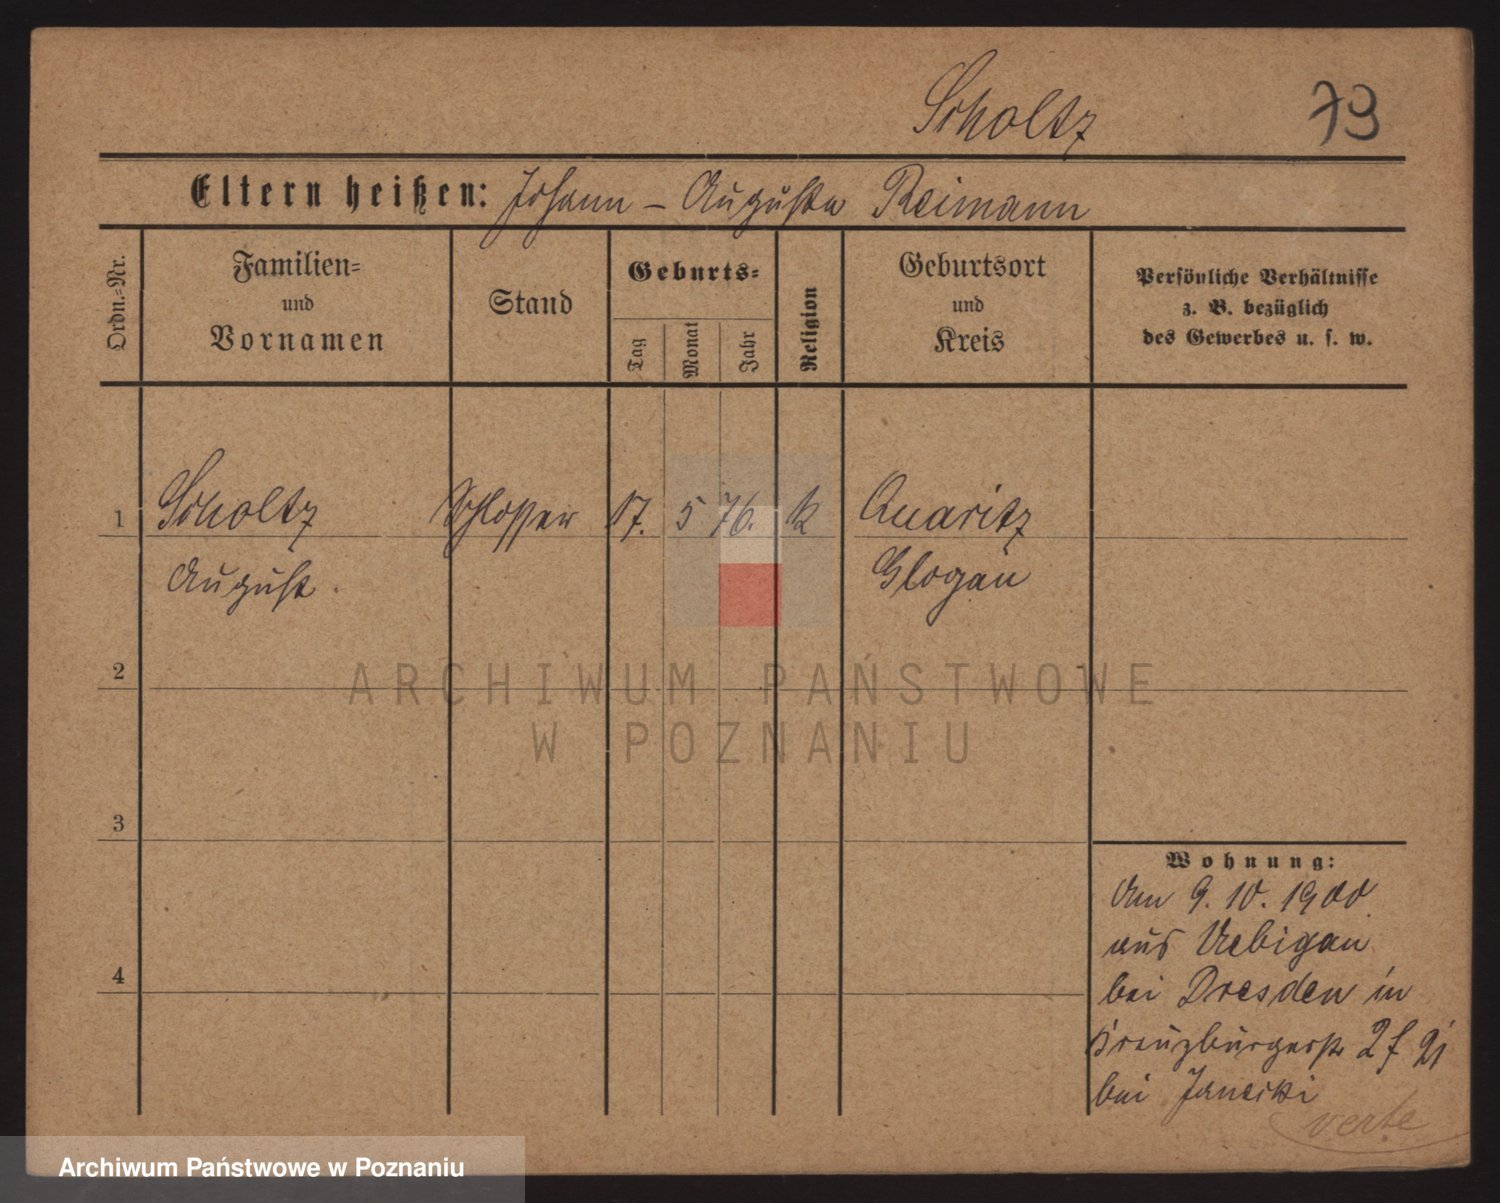 Scholtz 73
Eltern heißen: Johann – Auguste Reimann
Ordn.-Nr.
Familien-
und
Vornamen
Stand
Geburts-
Tag
Monat
Jahr
Religion
Geburtsort
und
Kreis
Persönliche Verhältnisse
z. B. bezüglich
des Gewerbes u. s. w.
1 Scholtz Schlosser 17. 5 76. k Quaritz
August. Glogau
2
ARCHIWUM PAŃSTWOWE
W POZNANIU
3
4
Wohnung:
Am 9. 10. 1900
aus Uebigau
bei Dresden in
Kreuzburgerstr 2
bei Janecki
verte
Archiwum Państwowe w Poznaniu